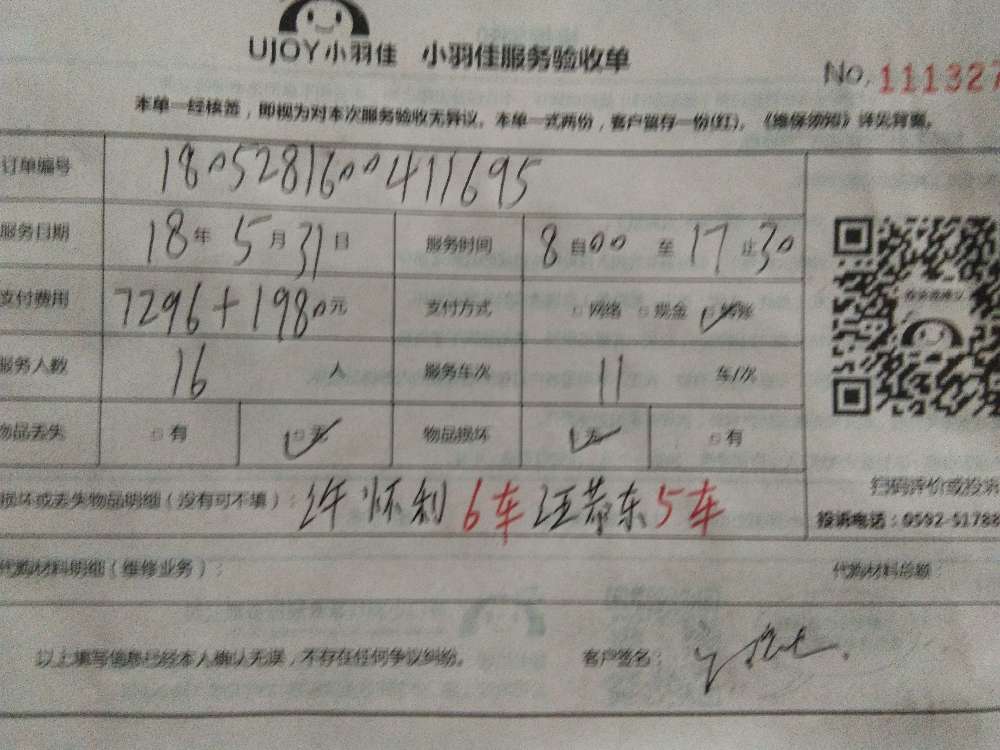 UJOY小羽佳 小羽佳服务验收单
No. 111327
本单一经核签，即视为对本次服务验收无异议。本单一式两份，客户留存一份(红)。《维保须知》详见背面。
订单编号 180528160041​1695
服务日期 18年5月31日 服务时间 8自00至17止30
支付费用 7296+1980元 支付方式 网络 现金 转账
服务人数 16人 服务车次 11车/次
物品丢失 有 无 物品损坏 无 有
损坏或丢失物品明细（没有可不填）：许怀利6车 汪恭东5车
扫码评价或投诉
投诉电话：0592-5178
代购材料明细（维修业务）： 代购材料总额
以上填写信息已经本人确认无误，不存在任何争议纠纷。 客户签名：